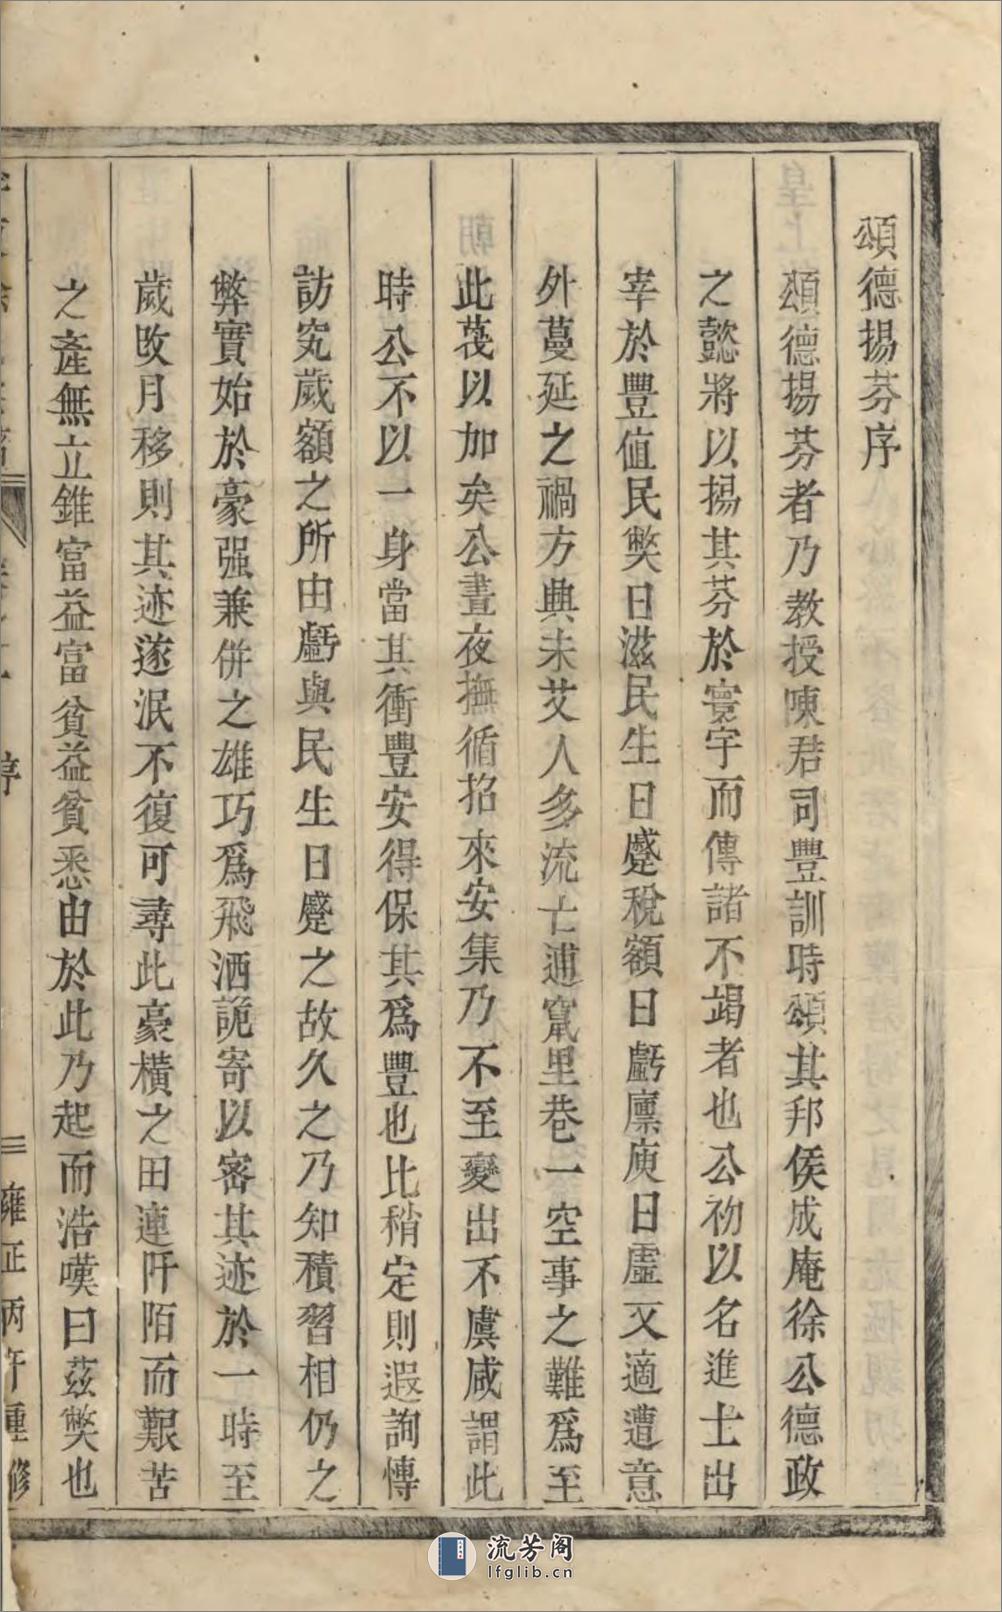 頌德揚芬序
頌德揚芬者乃教授陳君司豐訓時頌其邦侯成庵徐公德政
之懿將以揚其芬於寰宇而傳諸不竭者也公初以名進士出
宰於豐值民獘日滋民生日蹙稅額日虧廪庾日虛又適遭意
外蔓延之禍方興未艾人多流亡逋竄里巷一空事之難爲至
此蔑以加矣公晝夜撫循招來安集乃不至變出不虞咸謂此
時公不以一身當其衝豐安得保其爲豐也比稍定則遐詢愽
訪究歲額之所由虧與民生日蹙之故久之乃知積習相仍之
弊實始於豪强兼併之雄巧爲飛洒詭寄以審其迹於一時至
歲改月移則其迹遂泯不復可尋此豪橫之田連阡陌而艱苦
之產無立錐富益富貧益貧悉由於此乃起而浩嘆曰茲獘也
序
雍正丙午重修
流芳阁
lfglib.cn